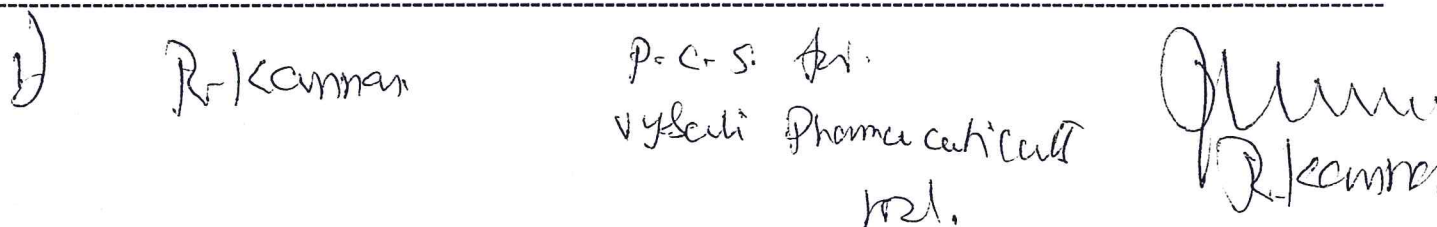 1) R. Kannan
P. C. S. for.
Vysali Pharmaceuticals
R. Kannan